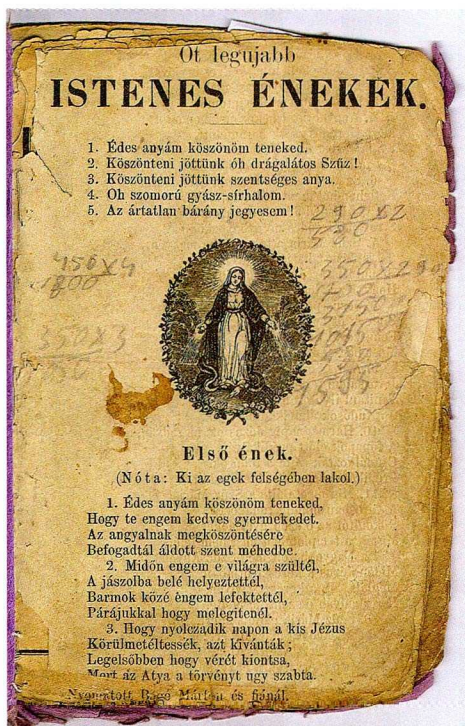 Öt legujabb
ISTENES ÉNEKEK.
1. Édes anyám köszönöm teneked.
2. Köszönteni jöttünk óh drágalátos Szűz!
3. Köszönteni jöttünk szentséges anya.
4. Oh szomorú gyász-sírhalom.
5. Az ártatlan bárány jegyesem!
290x2
580
450x4
1800
350x3
Első ének.
(Nóta: Ki az egek felségében lakol.)
1. Édes anyám köszönöm teneked,
Hogy te engem kedves gyermekedet.
Az angyalnak megköszöntésére
Befogadtál áldott szent méhedbe.
2. Midőn engem e világra szültél,
A jászolba belé helyeztettél,
Barmok közé engem lefektettél,
Párájukkal hogy melegitenél.
3. Hogy nyolczadik napon a kis Jézus
Körülmetéltessék, azt kívánták;
Legelsőbben hogy vérét kiontsa,
Mert az Atya a törvényt ugy szabta.
Nyomtatott Bagó Márton és fiánál.